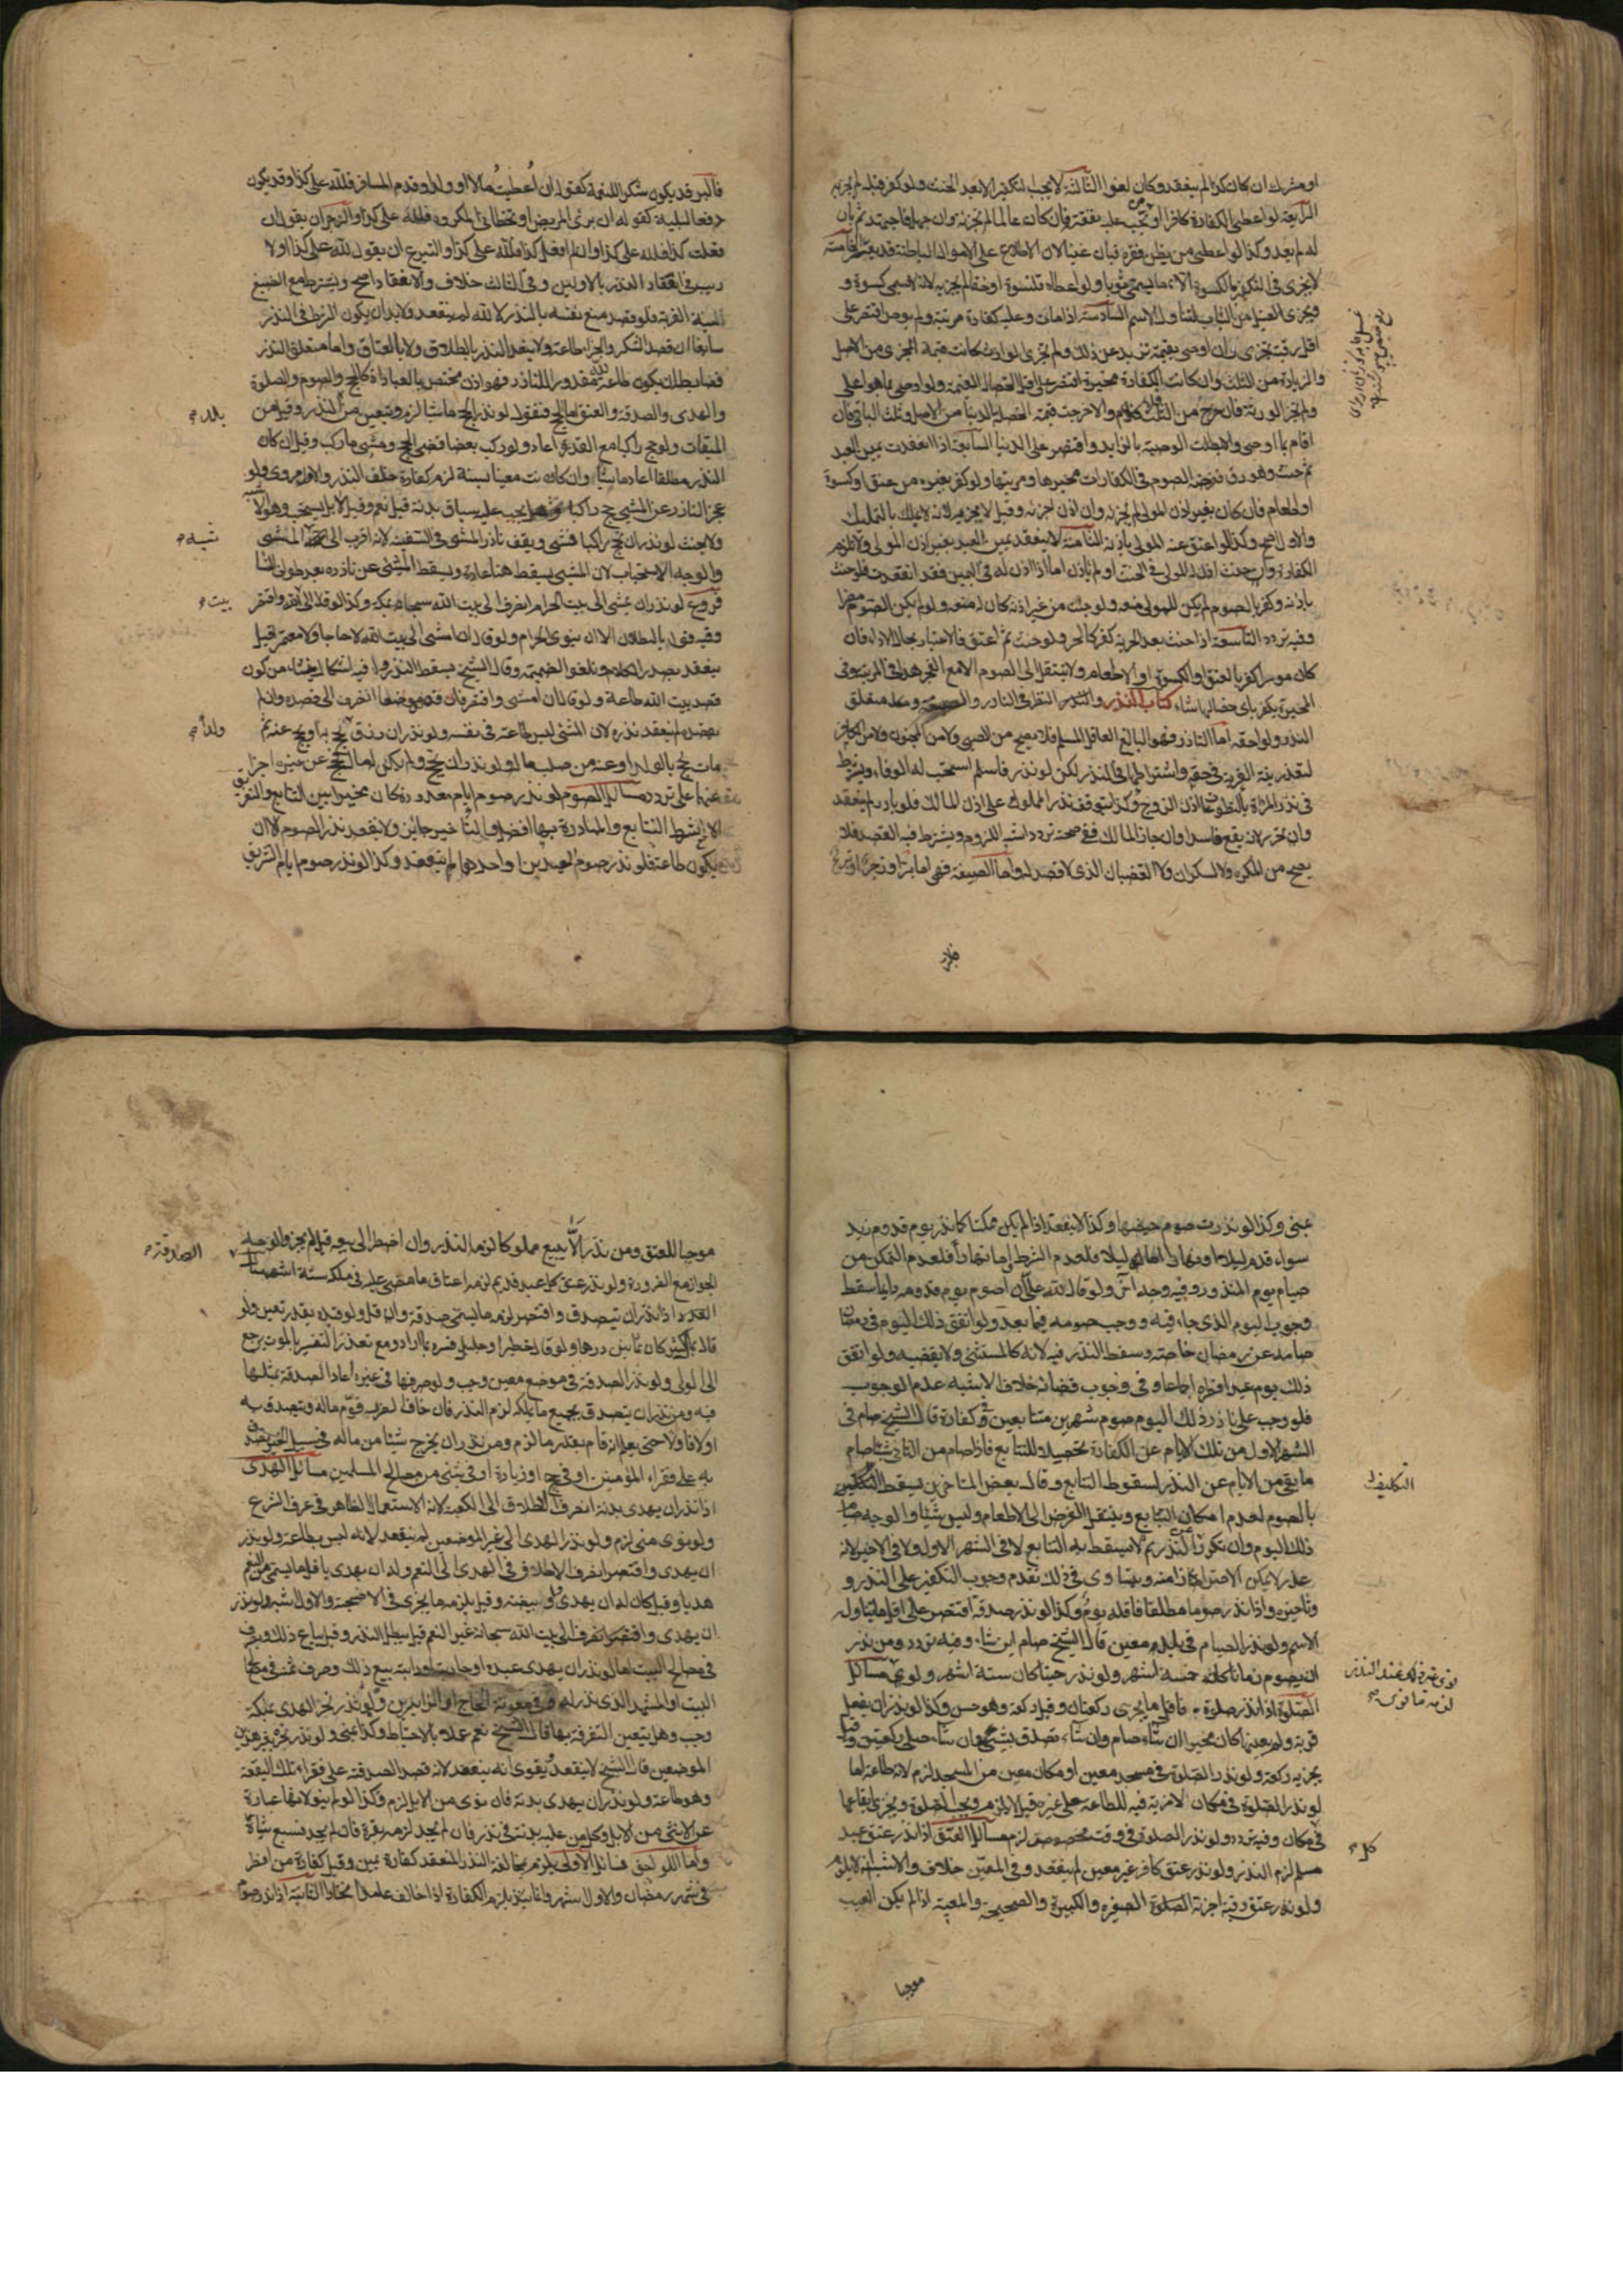 او مشرك ان كان كذا لم ينعقد وكان لغوا الثالثة لا يجب التكفير الا بعد الحنث ولو كفر قبله لم يجزه
الرابعة لو اعطى الكفارة كافرا او من تجب عليه نفقته فان كان عالما لم تجزئه وان جهل فاجتهد ثم بان
له لم يعد وكذا لو اعطى من يظن فقره فبان غنيا لان الاطلاع على الاحوال الباطنة قد يعسر الخامسة
لا يجزى في التكفير بالكسوة الا ما يسمى ثوبا ولو اعطاه قلنسوة او خفا لم يجزيه لانه لا يسمى كسوة و
ويجزى الغسيل من الثياب لتناول الاسم السادسة اذا مات وعليه كفارة مرتبة ولم يوص اقتصر على
اقل رقبة تجزى وان اوصى بقيمة تزيد عن ذلك ولم تجزى الوارث كانت قيمة المجزى من الاصل
والزيادة من الثلث وان كانت الكفارة مخيرة اقتصر على اقل الخصال القيمة ولو اوصى بما هو اعلى
ولم تجز الورثة فان خرج من الثلث فلا كلام والا خرجت قيمة الخصلة الدنيا من الاصل وثلث الباقي فان
اقام بما اوصى والا بطلت الوصية بالزايد واقتصر على الدنيا السابعة اذا انعقدت يمين العبد
ثم حنث وهو رق ففرضه الصوم في الكفارات مخيرها ومرتبها ولو كفر بغيره من عتق او كسوة
او اطعام فان كان بغير اذن المولى لم تجزئه وان اذن اجزئه وقيل لا يجزيه لانه لا يملك بالتمليك
والاول اصح وكذا لو اعتق عنه المولى باذنه الثامنة لا ينعقد يمين العبد بغير اذن المولى ولا تلزمه
الكفارة وان حنث اذن له المولى في الحنث او لم ياذن اما اذا اذن له في اليمين فقد انعقدت فلو حنث
باذنه وكفر بالصوم لم يكن للمولى منعه ولو حنث من غير اذنه كان له منعه ولو لم يكن الصوم مضرا
وفيه تردد التاسعة اذا حنث بعد الحرية كفر كالحر ولو حنث ثم اعتق فالاعتبار بحال الاداء فان
كان موسرا كفر بالعتق او الكسوة او الاطعام ولا ينتقل الى الصوم الا مع العجز هذا في المرتبة وفي
المخيرة يكفر باى خصالها شاء كتاب النذر والنظر في الناذر والصيغة ومتعلق
النذر ولواحقه اما الناذر فهو البالغ العاقل المسلم فلا يصح من الصبي ولا من المجنون ولا من الكافر
لتعذر نية القربة في حقه واشتراطها في النذر لكن لو نذر فاسلم استحب له الوفاء ويشترط
في نذر المراة بالتطوعات اذن الزوج وكذا يتوقف نذر المملوك على اذن المالك فلو بادر لم ينعقد
وان تحرر لانه يقع فاسدا وان اجاز المالك ففي صحته تردد اشبه اللزوم ويشترط فيه القصد فلا
يصح من المكره ولا السكران ولا الغضبان الذي لا قصد له واما الصيغة فهي اما بر او زجر او تبرع
فالبر
فالبر قد يكون شكرا للنعمة كقوله ان اعطيت مالا او ولدا او قدم المسافر فلله على كذا وقد يكون
دفعا لبلية كقوله ان برئ المريض او تخطاني المكروه فلله على كذا والزجر ان يقول ان
فعلت كذا فلله على كذا وان لم افعل كذا فلله على كذا والتبرع ان يقول لله على كذا ولا
ريب في انعقاد النذر بالاولين وفي الثالث خلاف والانعقاد اصح ويشترط مع الصيغة
نية القربة فلو قصد منع نفسه بالنذر لا لله لم ينعقد ولا بد ان يكون الشرط في النذر
سايغا ان قصد الشكر والجزاء طاعة ولا ينعقد النذر بالطلاق ولا بالعتاق واما متعلق النذر
فضابطه ان يكون طاعة لله مقدورا للناذر فهو اذن مختص بالعبادات كالحج والصوم والصلوة
والهدى والصدقة والعتق اما الحج فنقول لو نذر الحج ماشيا لزم ويتعين من النذر وقيل من
بلد
الميقات ولو حج راكبا مع القدرة اعاد ولو ركب بعضا قضى الحج ومشى ما ركب وقيل ان كان
النذر مطلقا اعاد ماشيا وان كان معينا بسنة لزمه كفارة خلف النذر والاول مروى ولو
عجز الناذر عن المشي حج راكبا وهل يجب عليه سياق بدنة قيل نعم وقيل لا بل يستحب وهو الاشبه
ولا يحنث لو نذر ان يحج راكبا فمشى ويقف ناذر المشى في السفينة لانه اقرب الى شبه المشى
شبه
والوجه الاستحباب لان المشي يسقط هنا عادة ويسقط المشي عن ناذره بعد طواف النساء
فروع لو نذر ان يمشى الى بيت الله الحرام انصرف الى بيت الله سبحانه بمكة وكذا لو قال الى بيت الله واقتصر
بيت
وفيه قول بالبطلان الا ان ينوى الحرام ولو قال ان امشى الى بيت الله لا حاجا ولا معتمرا قيل
ينعقد بصدر الكلام وتلغوا الضميمة وقال الشيخ يسقط النذر وفيه اشكال ينشاء من كون
قصد بيت الله طاعة ولو قال ان امشى واقتصر فان قصد موضعا انصرف الى قصده وان لم
يقصد لم ينعقد نذره لان المشي ليس طاعة في نفسه ولو نذر ان رزق ولدا يحج به او يحج عنه ثم
ولدا
مات حج بالولد او عنه من صلب ماله ولو نذر ان يحج ولم يكن له مال فحج عن غيره اجزا
عنهما على تردد مسائل الصوم لو نذر صوم ايام معدودة كان مخيرا بين التتابع والتفريق
الا ان يشرط التتابع والمبادرة بها افضل والتاخير جائز ولا ينعقد نذر الصوم الا ان
يكون طاعة فلو نذر صوم العيدين او احدهما لم ينعقد وكذا لو نذر صوم ايام التشريق
بمنى وكذا لو نذرت صوم حيضها وكذا لا ينعقد اذا لم يكن ممكنا كما نذر يوم قدوم زيد
سواء قدم ليلا او نهارا اما ليلا فلعدم الشرط واما نهارا فلعدم التمكن من
صيام يوم المنذور وفيه وجه اخر ولو قال لله على ان اصوم يوم قدومه دايما سقط
وجوب اليوم الذي جاء فيه ووجب صومه فيما بعد ولو اتفق ذلك اليوم في رمضان
صامه عن رمضان خاصة وسقط النذر فيه لانه كالمستثنى ولا يقضيه ولو اتفق
ذلك يوم عيد افطره اجماعا وفي وجوب قضائه خلاف الاشبه عدم الوجوب
فلو وجب على ناذر ذلك اليوم صوم شهرين متتابعين في كفارة قال الشيخ صام في
الشهر الاول من تلك الايام عن الكفارة تحصيلا للتتابع فاذا صام من الثاني شيئا صام
ما بقي من الايام عن النذر لسقوط التتابع وقال بعض المتاخرين يسقط التكليف
التكليف
بالصوم لعدم امكان التتابع وينتقل الفرض الى الاطعام وليس شيئا والوجه صيام
ذلك اليوم وان تكرر عن النذر ثم لا يسقط به التتابع لا في الشهر الاول ولا في الاخير لانه
عذر لا يمكن الاحتراز منه ويتساوى في ذلك تقدم وجوب التكفير على النذر و
وتاخيره واذا نذر صوما مطلقا فاقله يوم وكذا لو نذر صدقة اقتصر على اقل ما يتناوله
الاسم ولو نذر الصيام في بلد معين قال الشيخ صام اين شاء وفيه تردد ومن نذر
ان يصوم زمانا كان خمسة اشهر ولو نذر حينا كان ستة اشهر ولو نوى مسائل
نوى غير ذلك عند النذر
لزمه ما نوى
الصلوة اذا نذر صلوة فاقل ما يجزى ركعتان وقيل ركعة وهو حسن وكذا لو نذر ان يفعل
قربة ولم يعينها كان مخيرا ان شاء صام وان شاء تصدق بشئ وان شاء صلى ركعتين وقيل
يجزيه ركعة ولو نذر الصلوة في مسجد معين او مكان معين من المسجد لزم لانه طاعة اما
لو نذر الصلوة في مكان لا مزية فيه للطاعة على غيره قيل لا يلزم وتجب الصلوة ويجزى ايقاعها
في مكان وفيه تردد ولو نذر الصلوة في وقت مخصوص لزم مسائل العتق اذا نذر عتق عبد
كل
مسلم لزم النذر ولو نذر عتق كافر غير معين لم ينعقد وفي المعين خلاف والاشبه انه لا يلزم
ولو نذر عتق رقبة اجزئة الصغيرة والكبيرة والصحيحة والمعيبة اذا لم يكن العيب
موجبا
موجبا للعتق ومن نذر الا يبيع مملوكا لزمه النذر وان اضطر الى بيعه قيل لم يجز والوجه
الجواز مع الضرورة ولو نذر عتق كل عبد قديم لزمه اعتاق ما مضى عليه في ملكه ستة اشهر مسائل
الصدقة
الصدقة اذا نذر ان يتصدق واقتصر لزمه ما يسمى صدقة وان قل ولو قيده بقدر تعين ولو
قال بمال كثير كان ثمانين درهما ولو قال خطير او جليل فسره بما اراد ومع تعذر التفسير بالموت يرجع
الى الولي ولو نذر الصدقة في موضع معين وجب ولو صرفها في غيره اعاد الصدقة بمثلها
فيه ومن نذر ان يتصدق بجميع ما يملكه لزم النذر فان خاف الضرر قوم ماله وتصدق به
اولا فاولا حتى يعلم انه قام بقدر ما لزم ومن نذر ان يخرج شيئا من ماله في سبيل الخير تصدق
به على فقراء المؤمنين او في حج او زيارة او في شئ من مصالح المسلمين مسائل الهدى
اذا نذر ان يهدى بدنة انصرف الاطلاق الى الكعبة لانه الاستعمال الظاهر في عرف الشرع
ولو نوى منى لزم ولو نذر الهدى الى غير الموضعين لم ينعقد لانه ليس بطاعة ولو نذر
ان يهدى واقتصر انصرف الاطلاق في الهدى الى النعم وله ان يهدى باقل ما يسمى من النعم
هديا وقيل كان له ان يهدى ولو بيضة وقيل يلزمه ما يجزى في الاضحية والاول اشبه ولو نذر
ان يهدى واقتصر انصرف الى بيت الله سبحانه غير النعم قيل يبطل النذر وقيل يباع ذلك ويصرف
في مصالح البيت اما لو نذر ان يهدى عبده او جاريته او دابته بيع ذلك وصرف ثمنه في مصالح
البيت او المشهد الذي نذر له وفي معونة الحاج او الزايرين ولو نذر نحر الهدى بمكة
وجب وهل يتعين التفرقة بها قال الشيخ نعم عملا بالاحتياط وكذا بمنى ولو نذر نحره بغير هذين
الموضعين قال الشيخ لا ينعقد ويقوى انه ينعقد لانه قصد الصدقة على فقراء تلك البقعة
وهو طاعة ولو نذر ان يهدى بدنة فان نوى من الابل لزم وكذا لو لم ينو لانها عبارة
عن الانثى من الابل وكل من عليه بدنة في نذر فان لم يجد لزمه بقرة فان لم يجد فسبع شياه
واما اللواحق فمسائل الاولى يلزم بمخالفة النذر المنعقد كفارة يمين وقيل كفارة من افطر
في شهر رمضان والاول اشهر وانما يلزم الكفارة اذا خالف عامدا مختارا الثانية اذا نذر صوم